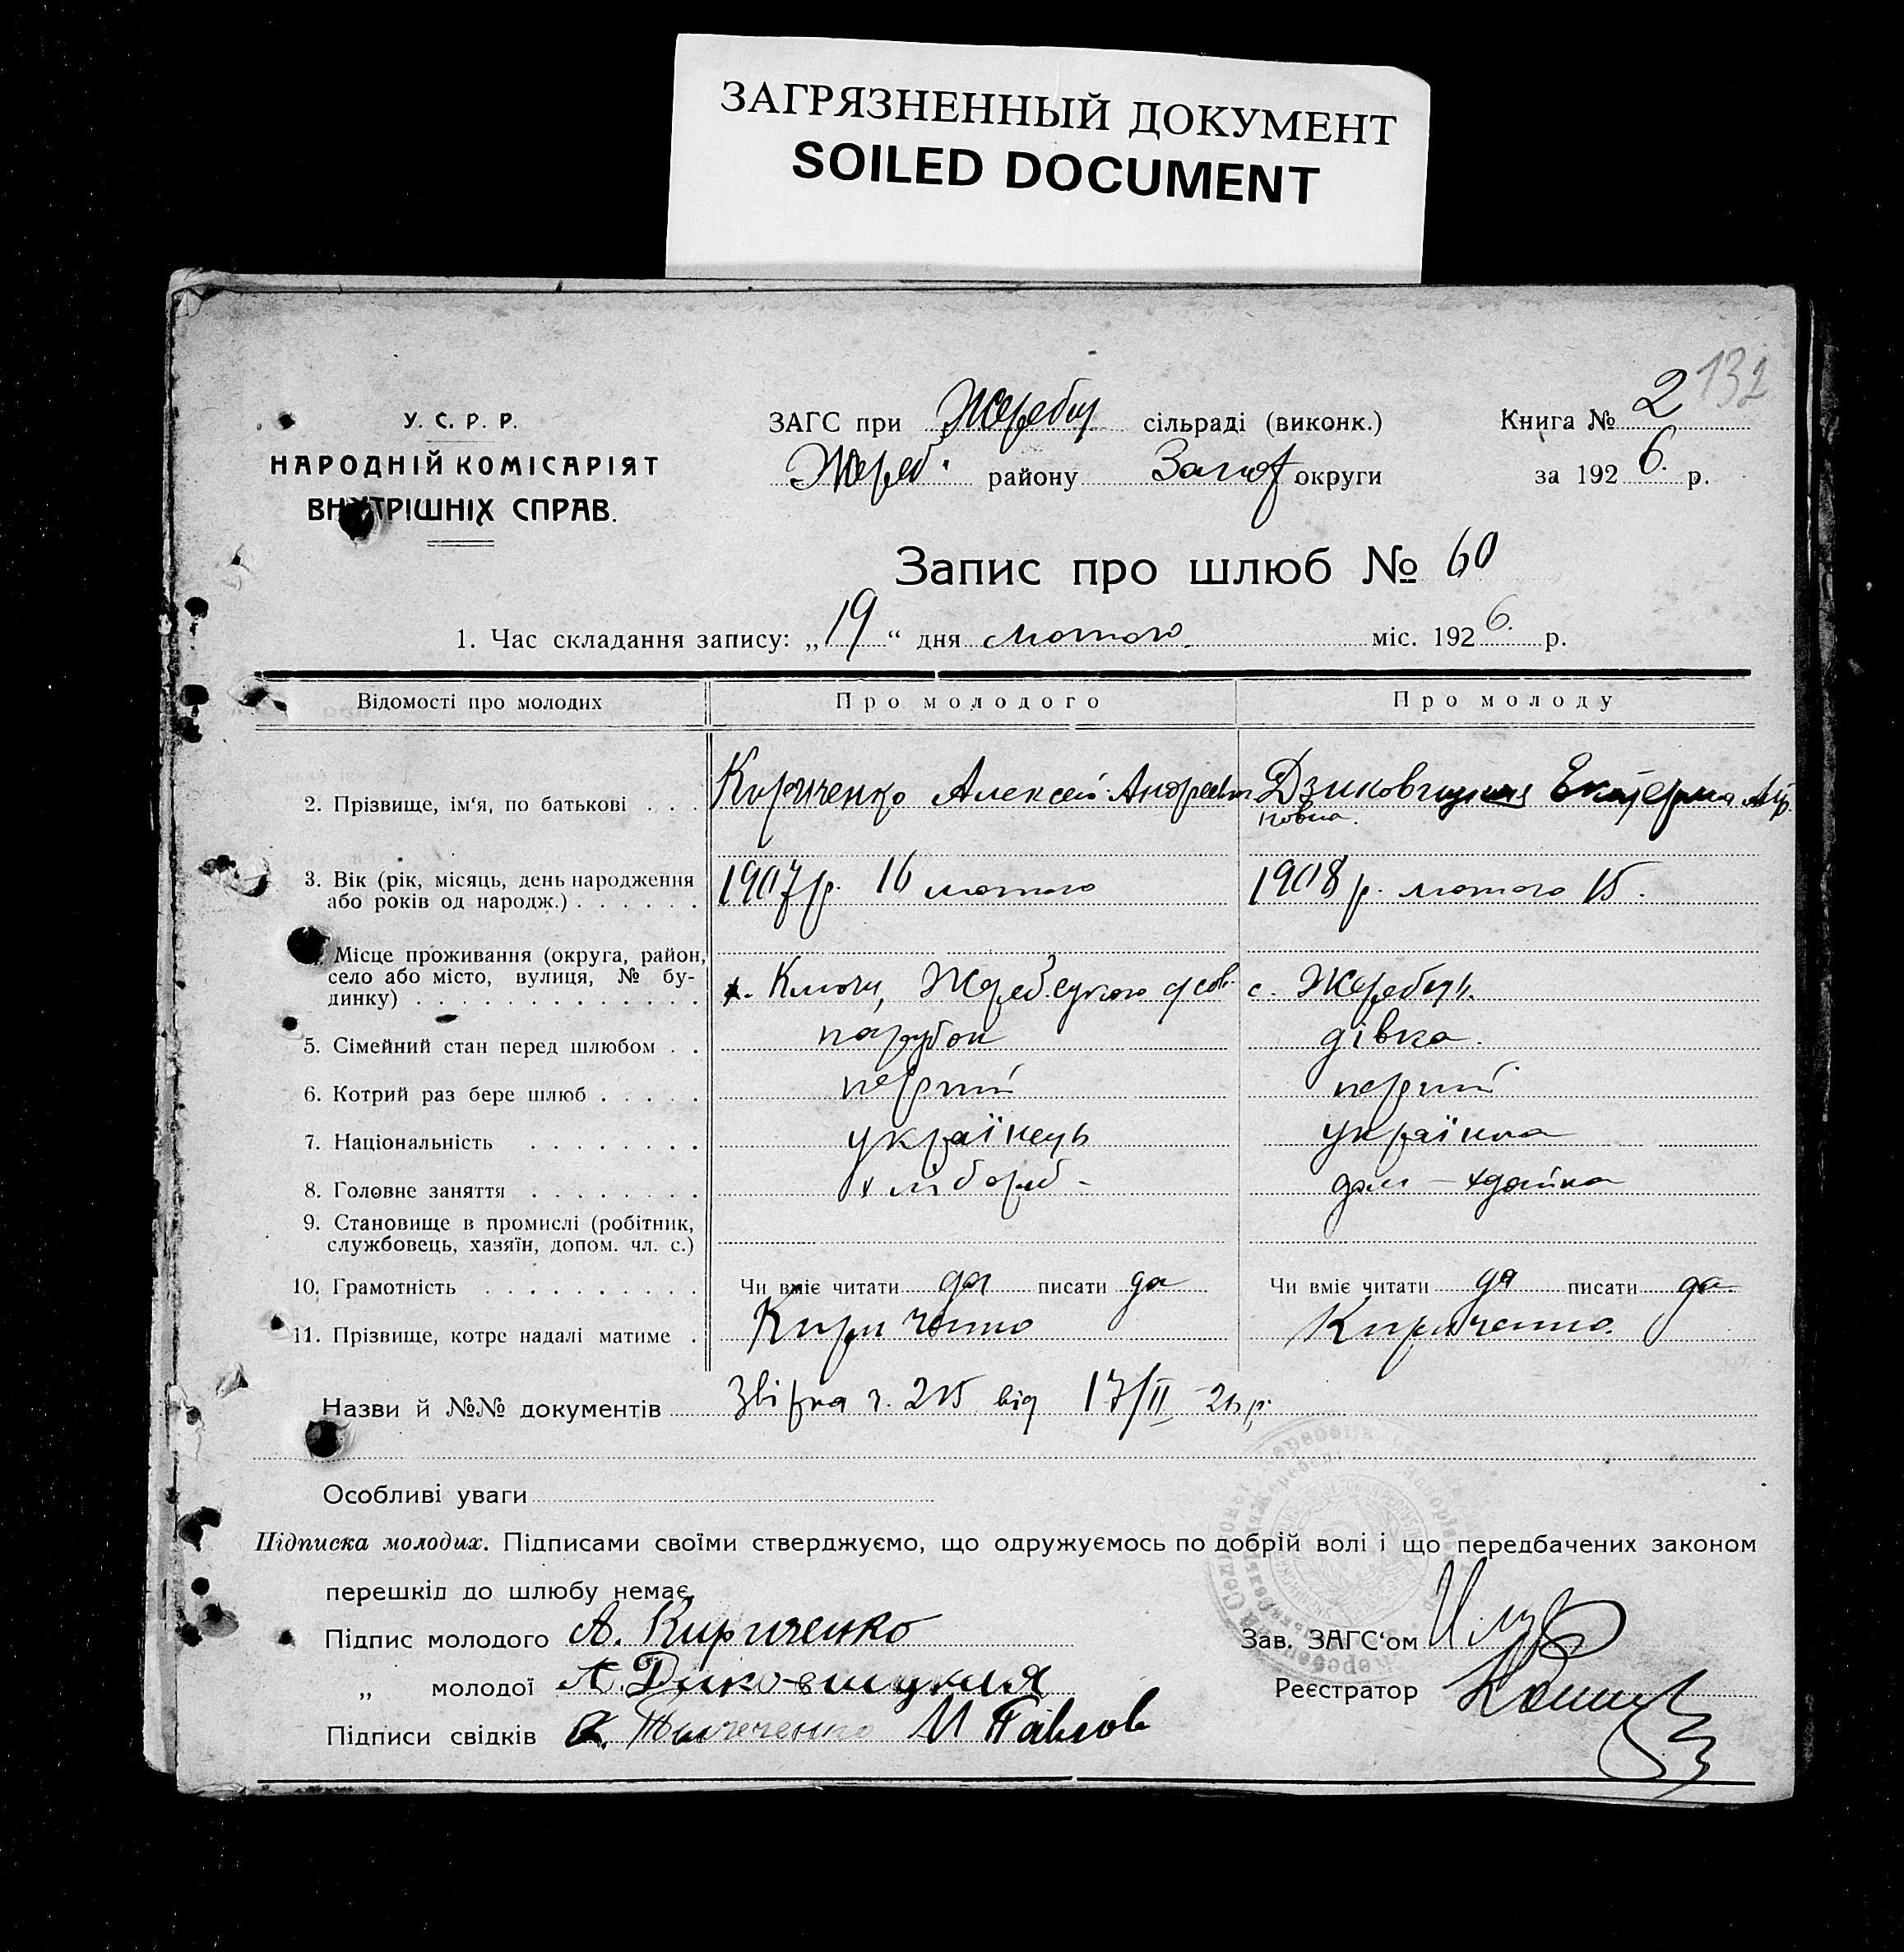 ЗАГРЯЗНЕННЫЙ ДОКУМЕНТ
SOILED DOCUMENT
132
У. С. Р. Р.
НАРОДНІЙ КОМІСАРІЯТ
ВНУТРІШНІХ СПРАВ.
ЗАГС при Жеребец сільраді (виконк.)
Жереб. району Запор округи
Книга № 2
за 1926 р.
Запис про шлюб № 60
1. Час складання запису: „19“ дня лютого міс. 1926. р.
Відомості про молодих Про молодого Про молоду
2. Прізвище, ім‘я, по батькові . . . Кириченко Алексей Андреевич Дзиковицкая Екатерина
новна.
3. Вік (рік, місяць, день народження
або років од народж.) . . . . . . 1907 р. 16 лютого 1908 р. лютого 15.
4. Місце проживання (округа, район,
село або місто, вулиця, № бу-
динку) . . . . . . . . . . . . . х. Ключи, Жеребецкого с. Жеребець.
5. Сімейний стан перед шлюбом . . парубок дівка.
6. Котрий раз бере шлюб . . . . . перший перший
7. Національність . . . . . . . . українець українка
8. Головне заняття . . . . . . . . хлібороб - дом-хозяйка
9. Становище в промислі (робітник,
службовець, хазяїн, допом. чл. с.)
10. Грамотність . . . . . . . . . . Чи вміє читати да писати да Чи вміє читати да писати да
11. Прізвище, котре надалі матиме . Кириченко Кириченко.
Назви й №№ документів Звірка ч. 215 від 17/II 26 р.
Особливі уваги
Підписка молодих. Підписами своїми стверджуємо, що одружуємось по добрій волі і що передбачених законом
перешкід до шлюбу немає.
Підпис молодого А. Кириченко
Зав. ЗАГС‘ом
„ молодої
Реєстратор
Підписи свідків И Павлов